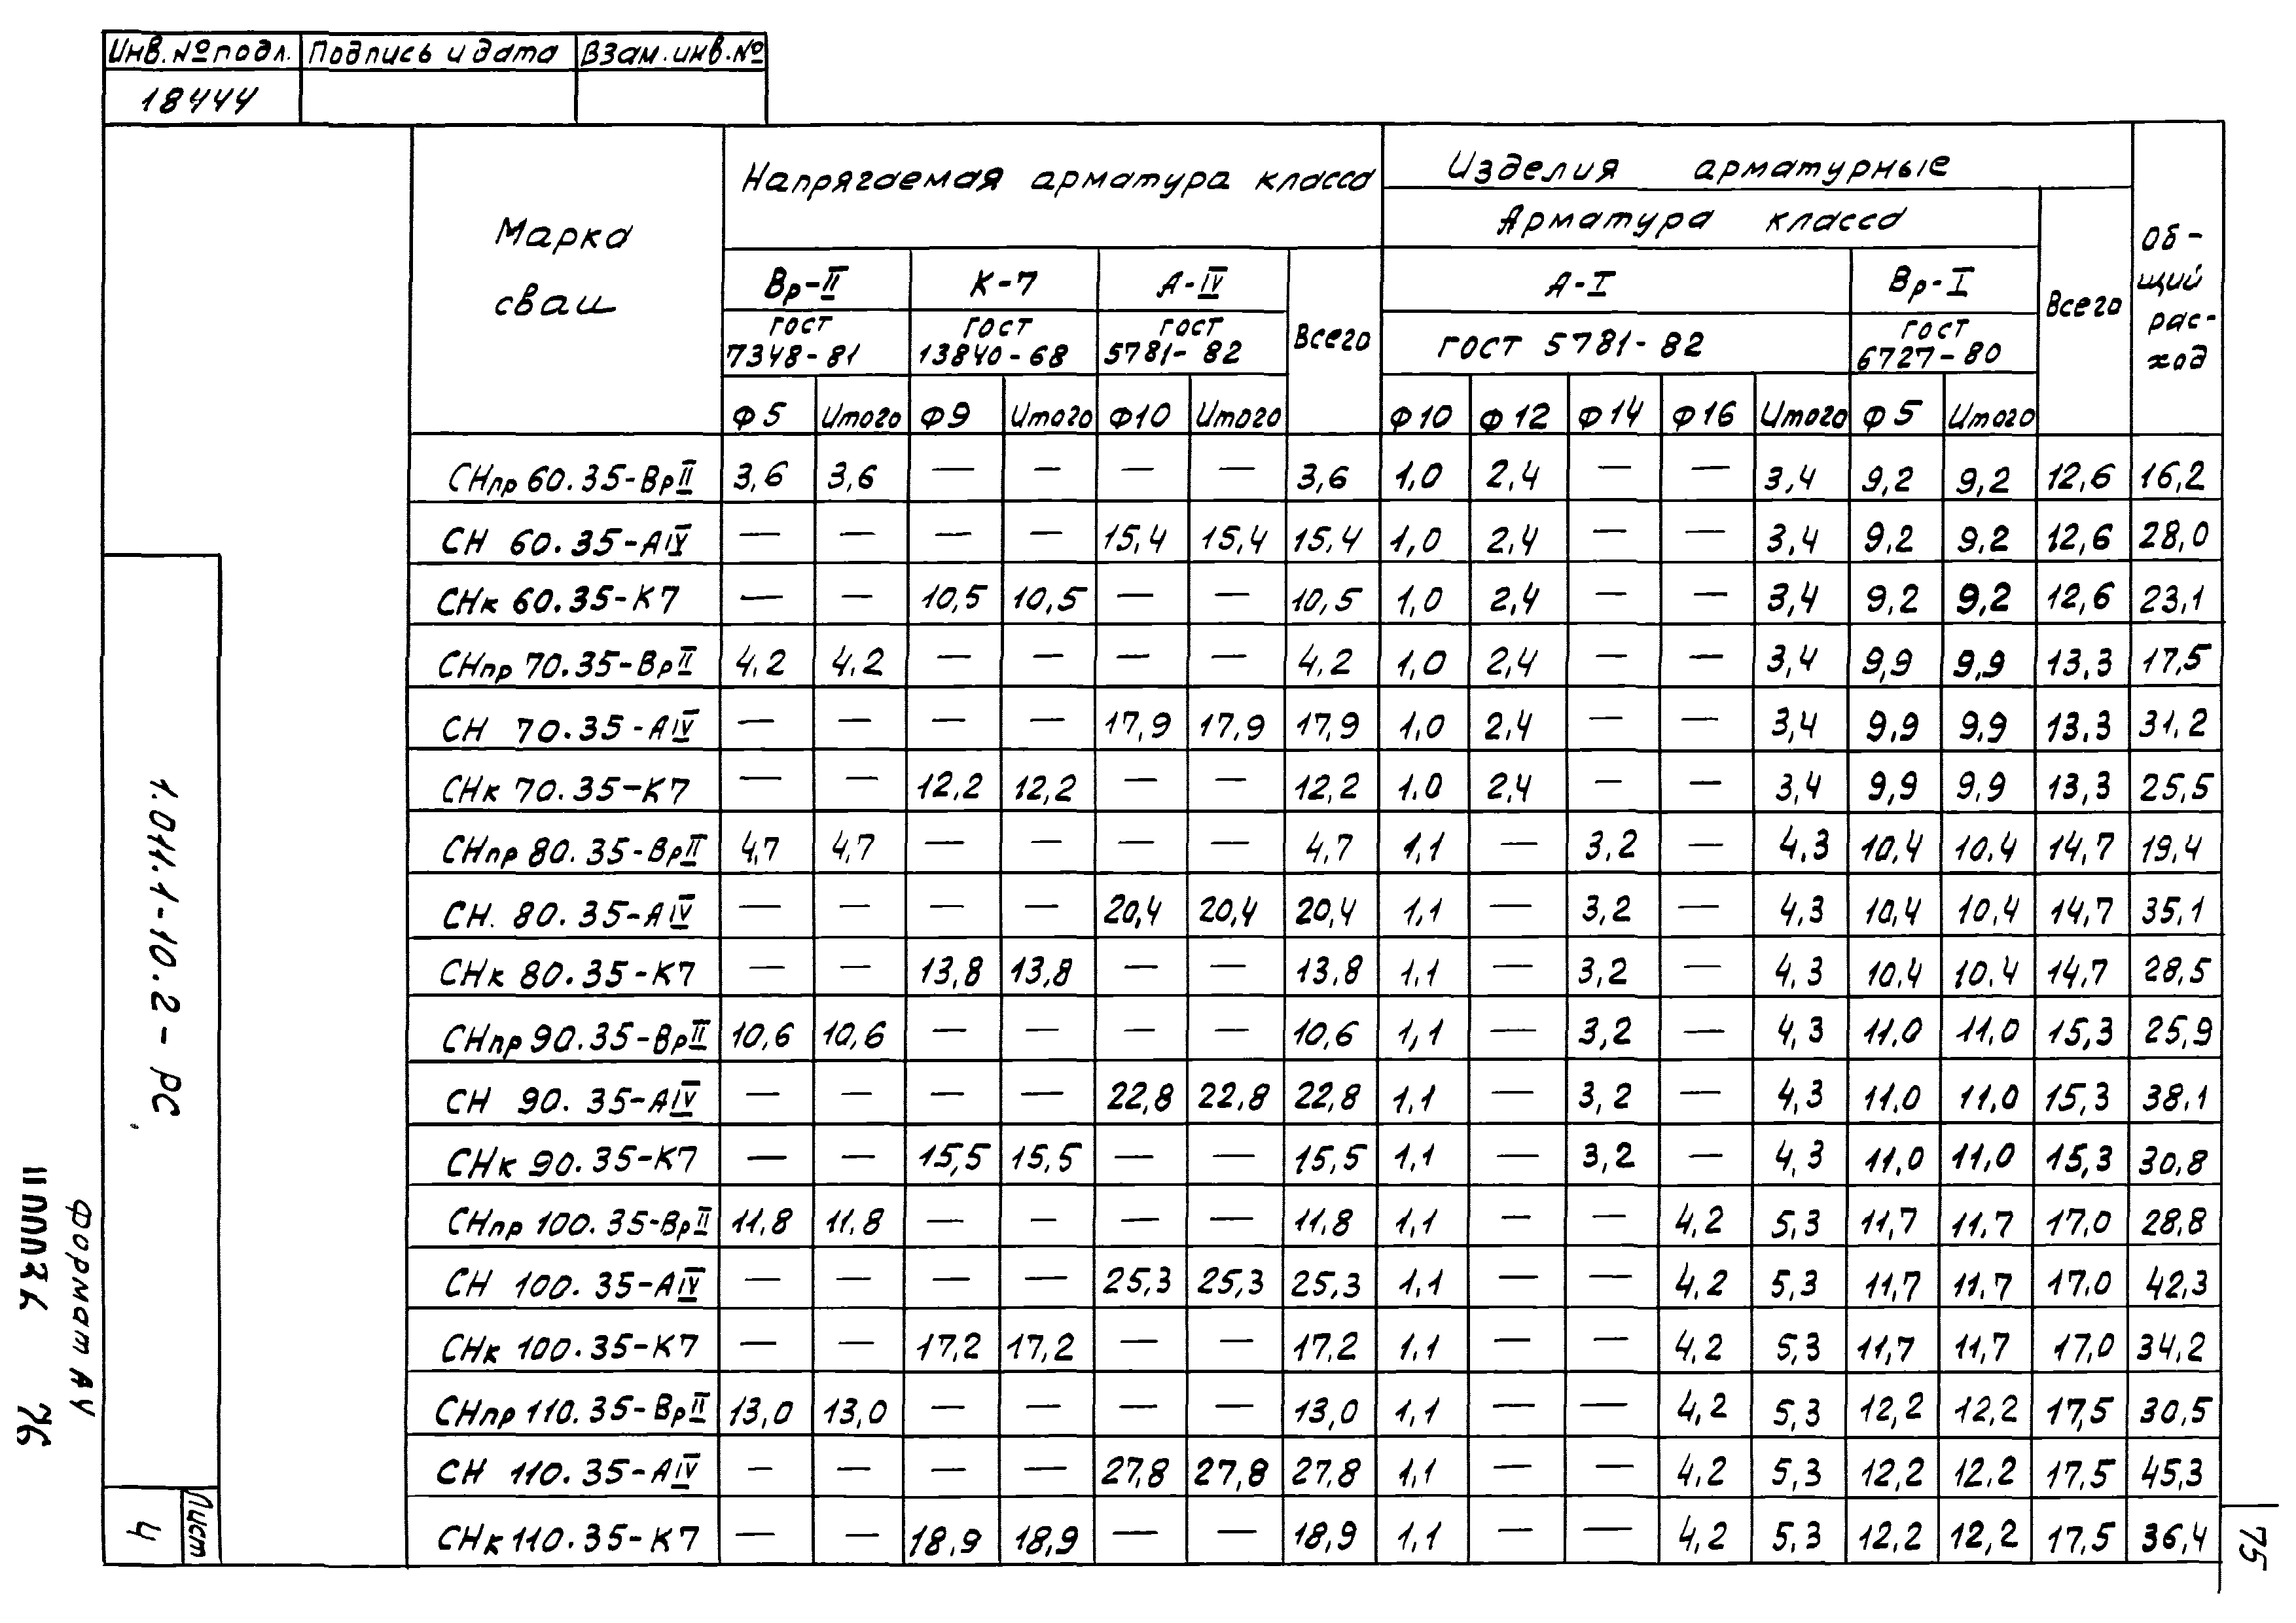 Инв. № подл. Подпись и дата Взам. инв. №
18444
Марка сваи
Напрягаемая арматура класса
Изделия арматурные
Арматура класса
Общий рас-ход
Вр-II К-7 А-IV Всего А-I Вр-I Всего
ГОСТ 7348-81 ГОСТ 13840-68 ГОСТ 5781-82 ГОСТ 5781-82 ГОСТ 6727-80
Ф5 Итого Ф9 Итого Ф10 Итого Ф10 Ф12 Ф14 Ф16 Итого Ф5 Итого
СНпр 60.35-ВрII 3,6 3,6 — — — — 3,6 1,0 2,4 — — 3,4 9,2 9,2 12,6 16,2
СН 60.35-АIV — — — — 15,4 15,4 15,4 1,0 2,4 — — 3,4 9,2 9,2 12,6 28,0
СНк 60.35-К7 — — 10,5 10,5 — — 10,5 1,0 2,4 — — 3,4 9,2 9,2 12,6 23,1
СНпр 70.35-ВрII 4,2 4,2 — — — — 4,2 1,0 2,4 — — 3,4 9,9 9,9 13,3 17,5
СН 70.35-АIV — — — — 17,9 17,9 17,9 1,0 2,4 — — 3,4 9,9 9,9 13,3 31,2
СНк 70.35-К7 — — 12,2 12,2 — — 12,2 1.0 2,4 — — 3,4 9,9 9,9 13,3 25,5
СНпр 80.35-ВрII 4,7 4,7 — — — — 4,7 1,1 — 3,2 — 4,3 10,4 10,4 14,7 19,4
СН. 80.35-АIV — — — — 20,4 20,4 20,4 1,1 — 3,2 — 4,3 10,4 10,4 14,7 35,1
СНк 80.35-К7 — — 13,8 13,8 — — 13,8 1,1 — 3,2 — 4,3 10,4 10,4 14,7 28,5
СНпр 90.35-ВрII 10,6 10,6 — — — — 10,6 1,1 — 3,2 — 4,3 11,0 11,0 15,3 25,9
СН 90.35-АIV — — — — 22,8 22,8 22,8 1,1 — 3,2 — 4,3 11,0 11,0 15,3 38,1
СНк 90.35-К7 — — 15,5 15,5 — — 15,5 1,1 — 3,2 — 4,3 11,0 11,0 15,3 30,8
СНпр 100.35-ВрII 11,8 11,8 — — — — 11,8 1,1 — — 4,2 5,3 11,7 11,7 17,0 28,8
СН 100.35-АIV — — — — 25,3 25,3 25,3 1,1 — — 4,2 5,3 11,7 11,7 17,0 42,3
СНк 100.35-К7 — — 17,2 17,2 — — 17,2 1,1 — — 4,2 5,3 11,7 11,7 17,0 34,2
СНпр 110.35-ВрII 13,0 13,0 — — — — 13,0 1,1 — — 4,2 5,3 12,2 12,2 17,5 30,5
СН 110.35-АIV — — — — 27,8 27,8 27,8 1,1 — — 4,2 5,3 12,2 12,2 17,5 45,3
СНк 110.35-К7 — — 18,9 18,9 — — 18,9 1,1 — — 4,2 5,3 12,2 12,2 17,5 36,4
1.011.1-10.2-РС
Лист
4
Формат А4
76
75